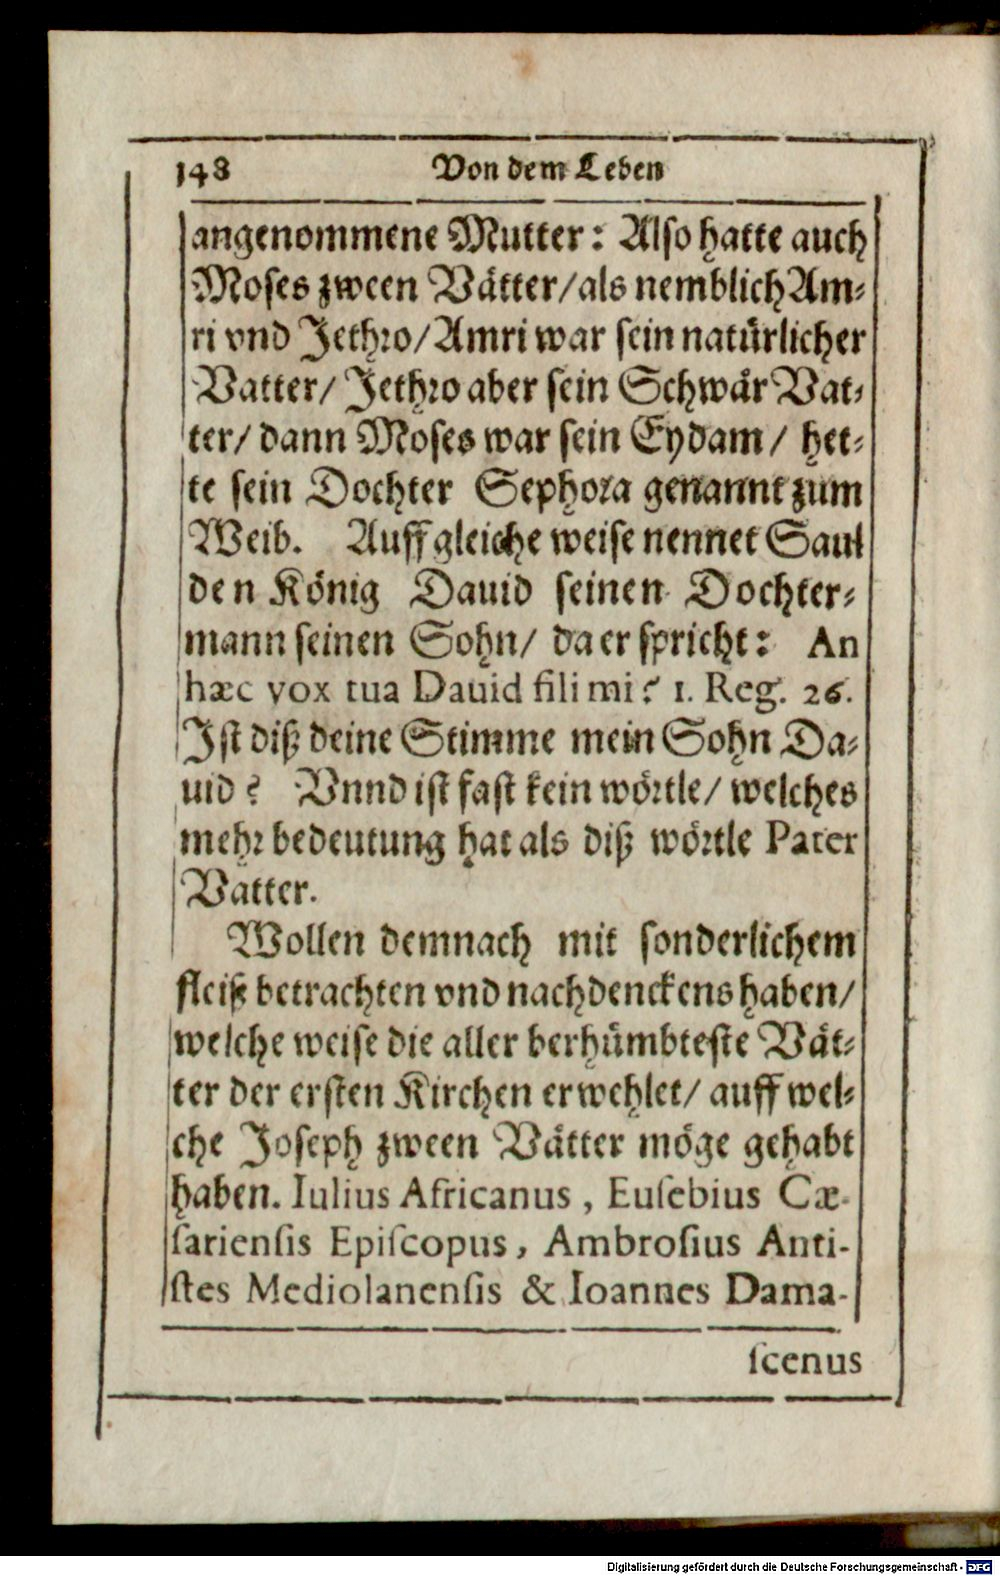 148 Von dem Leben
angenommene Mutter: Also hatte auch
Moses zween Vätter/ als nemblich Am-
ri vnd Jethro/ Amri war sein natürlicher
Vatter/ Jethro aber sein Schwär Vat-
ter/ dann Moses war sein Eydam/ het-
te sein Dochter Sephora genannt zum
Weib. Auff gleiche weise nennet Saul
den König Dauid seinen Dochter-
mann seinen Sohn/ da er spricht: An
hæc vox tua Dauid fili mi? 1. Reg. 26.
Ist diß deine Stimme mein Sohn Da-
uid? Vnnd ist fast kein wörtle/ welches
mehr bedeutung hat als diß wörtle Pater
Vatter.
Wollen demnach mit sonderlichem
fleiß betrachten vnd nachdenckens haben/
welche weise die aller berhümbteste Vät-
ter der ersten Kirchen erwehlet/ auff wel-
che Joseph zween Vätter möge gehabt
haben. Iulius Africanus, Euſebius Cæ-
ſarienſis Epiſcopus, Ambroſius Anti-
ſtes Mediolanenſis & Ioannes Dama-
ſcenus
Digitalisierung gefördert durch die Deutsche Forschungsgemeinschaft - DFG